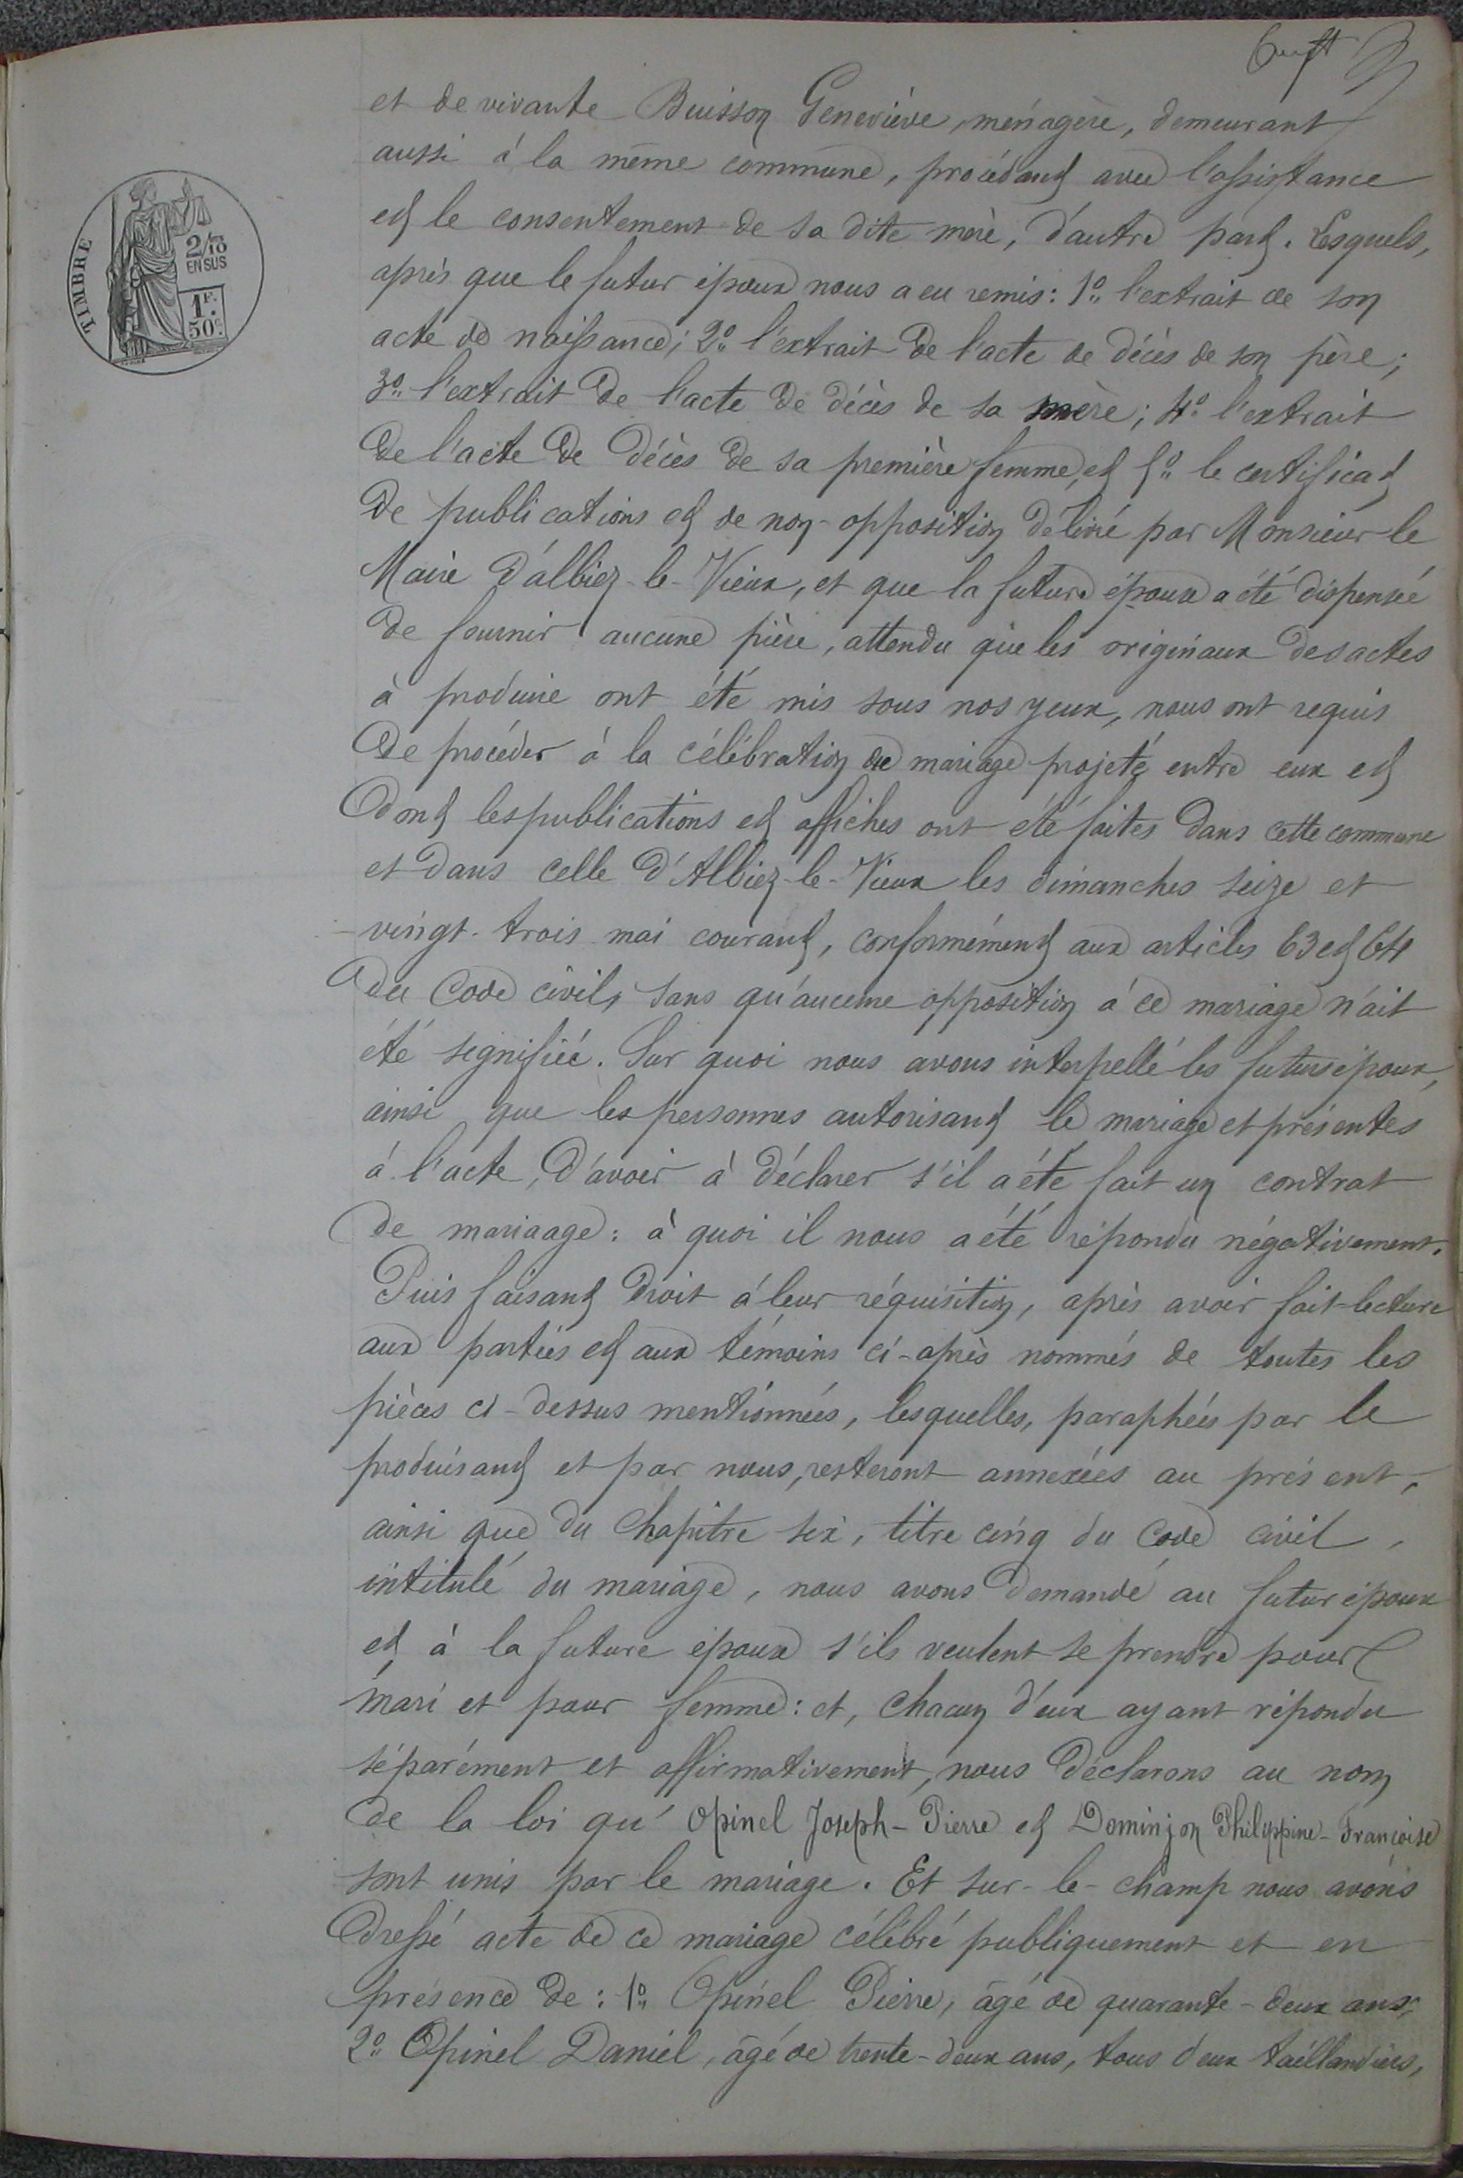 et de vivante Buisson Geneviève, ménagère, demeurant
aussi à la même commune, procédant avec l'assistance
et le consentement de sa dite mère, d'autre part. Lesquels,
après que le futur époux nous a eu remis: 1° l'extrait de son
acte de naissance; 2° l'extrait de l'acte de décès de son père;
3° l'extrait de l'acte de décès de sa mère; 4° l'extrait
de l'acte de décès de sa première femme, et 5° le certificat
de publications et de non-opposition délivré par Monsieur le
Maire d'albiez-le-Vieux, et que la future épouse a été dispensée
de fournir aucune pièce, attendu que les originaux des actes
à produire ont été mis sous nos yeux, nous ont requis
de procéder à la célébration du mariage projeté entre eux et
dont les publications et affiches ont été faites dans cette commune
et dans celle d'Albiez-le-Vieux les dimanches seize et
vingt-trois mai courant, conformément aux articles 63 et 64
du Code civil, sans qu'aucune opposition à ce mariage n'ait
été signifiée. Sur quoi nous avons interpellé les futurs époux,
ainsi que les personnes autorisant le mariage et présentes
à l'acte, d'avoir à déclarer s'il a été fait un contrat
de mariaage: à quoi il nous a été répondu négativement.
Puis faisant droit à leur réquisition, après avoir fait lecture
aux parties et aux témoins ci-après nommés de toutes les
pièces ci-dessus mentionnées, lesquelles, paraphées par le
produisant et par nous, resteront annexées au présent,
ainsi que du Chapitre six, titre cinq du Code civil,
intitulé du mariage, nous avons demandé au futur époux
et à la future épouse s'ils veulent se prendre pour
mari et pour femme: et, chacun d'eux ayant répondu
séparément et affirmativement, nous déclarons au nom
de la loi qu' Opinel Joseph-Pierre et Dominjon Philippine-Françoise
sont unis par le mariage. Et sur-le-champ nous avons
dressé acte de ce mariage célébré publiquement et en
présence de: 1° Opinel Pierre, âgé de quarante-deux ans;
2° Opinel Daniel, âgé de trente-deux ans, tous deux taillandiers,
TIMBRE
2/10
EN SUS
1F.
50c.